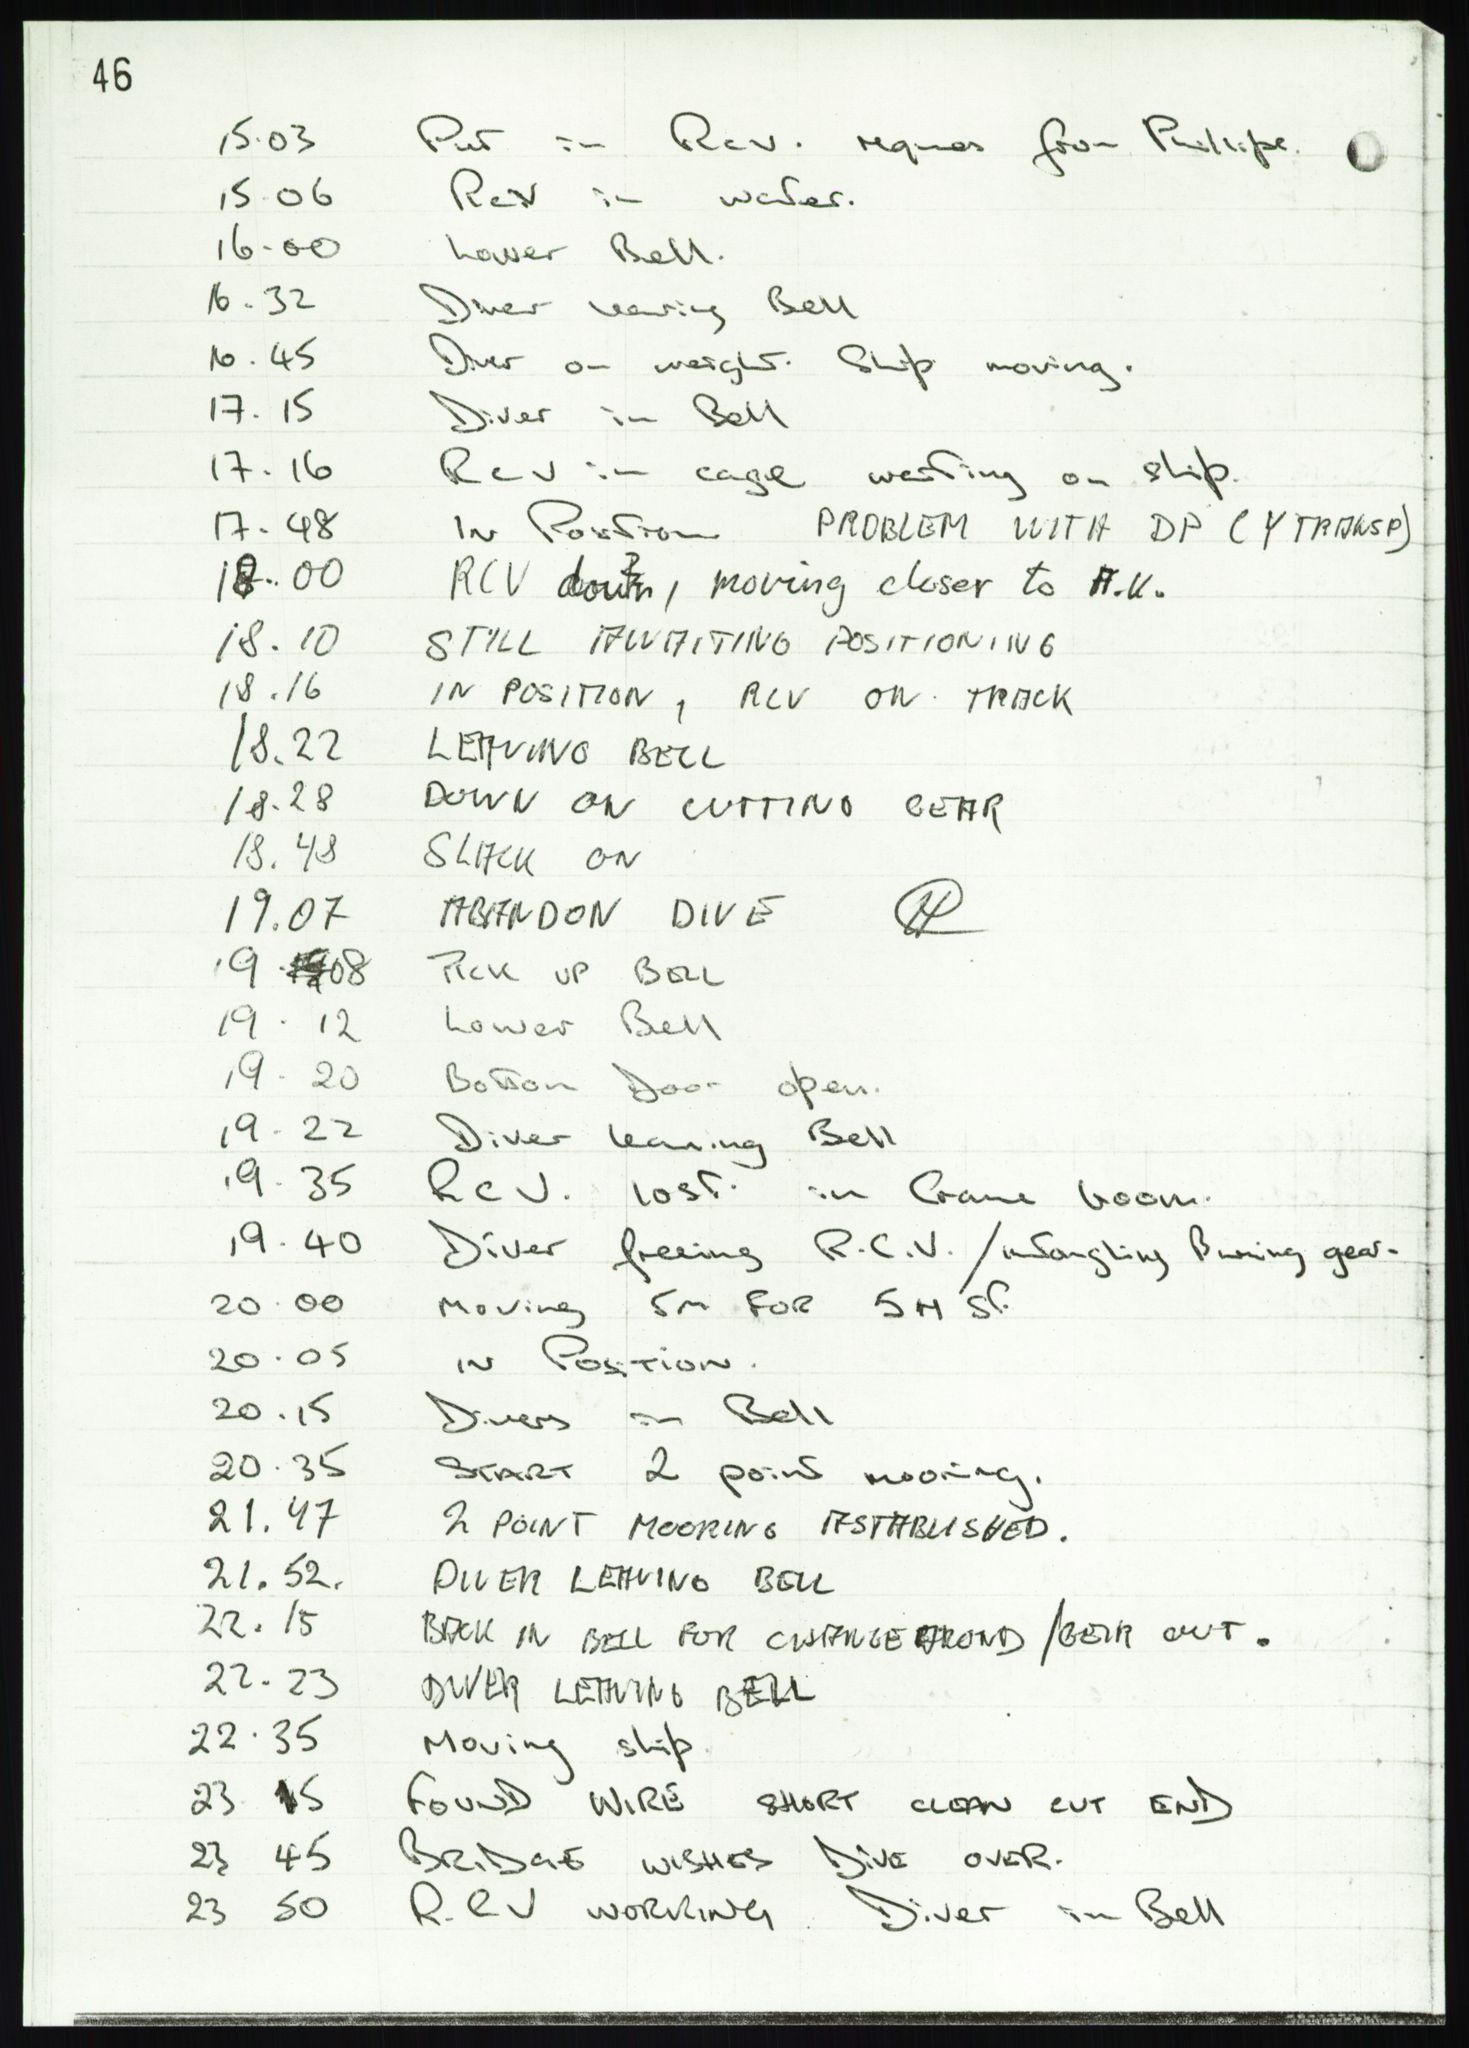 46
15.03 Put in Rcv. request from Phillips.
15.06 Rcv in water.
16.00 Lower Bell.
16.32 Diver leaving Bell
16.45 Diver on weight. Ship moving.
17.15 Diver in Bell
17.16 Rcv in cage waiting on ship.
17.48 In Position PROBLEM WITH DP (Y TRANSP)
18.00 RCV down, moving closer to A.K.
18.10 STILL AWAITING POSITIONING
18.16 IN POSITION, RCV ON TRACK
18.22 LEAVING BELL
18.28 DOWN ON CUTTING GEAR
18.48 SLACK ON
19.07 ABANDON DIVE
19.08 PICK UP BELL
19.12 Lower Bell
19.20 Bottom Door open.
19.22 Diver leaving Bell
19.35 R.C.V. lost. in Crane boom.
19.40 Diver freeing R.C.V. / untangling Burning gear.
20.00 Moving 5m FOR
20.05 IN POSITION.
20.15 Divers in Bell
20.35 START 2 point mooring.
21.47 2 POINT MOORING ASTABLISHED.
21.52. DIVER LEAVING BELL
22.15 BACK IN BELL FOR CHANGE AROND / GEAR OUT.
22.23 DIVER LEAVING BELL
22.35 Moving ship
23 15 FOUND WIRE SHORT CLEAN CUT END
23 45 BRIDGE WISHES DIVE OVER.
23 50 R.C.V WORKING. Diver in Bell